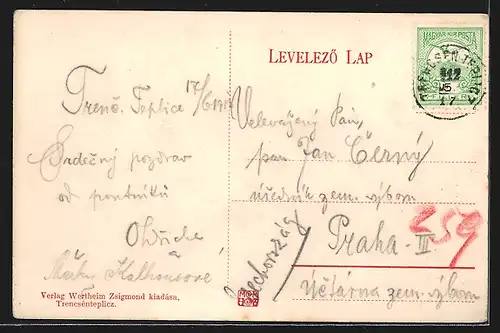 LEVELEZŐ LAP
MAGYAR KIR. POSTA
TRENCSÉN TEPLICZ
912
17
Trenč. Teplice 17/6 1912
Srdečný pozdrav
od poutníků
Oldřicha
Kalhousové
Velevážený Pán,
pan Jan Černý
úředník zem. výbor
Praha-III
Účtárna zem. výboru
Csehország
259
Verlag Wertheim Zsigmond kiadása,
Trencsénteplicz.